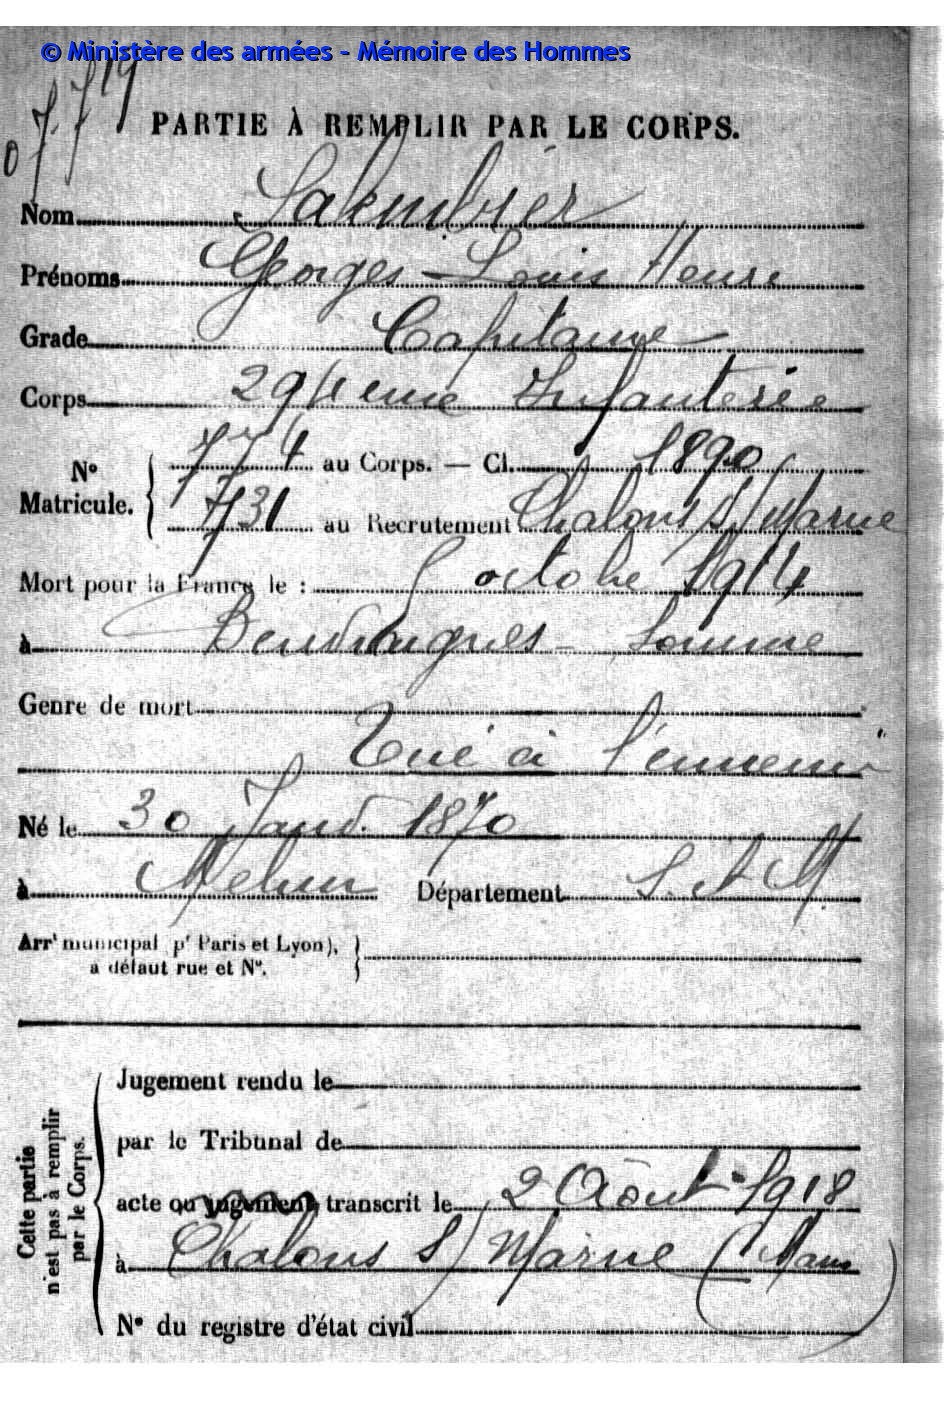 © Ministère des armées - Mémoire des Hommes
PARTIE À REMPLIR PAR LE CORPS.
Nom Salembier
Prénoms Georges-Louis Henri
Grade Capitaine
Corps 294eme Infanterie
N° Matricule. 774 au Corps. — Cl. 1890
731 au Recrutement Chalons s/ Marne
Mort pour la France le : 5 octobre 1914
à - Somme
Genre de mort
Tué à l'ennemi
Né le 30 Janv. 1870
à Melun Département S. et M.
Arrt municipal pr Paris et Lyon),
à défaut rue et N°.
Cette partie n'est pas à remplir par le Corps.
Jugement rendu le
par le Tribunal de
acte ou jugement transcrit le 2 Août 1918
à Chalons s/ Marne (Marne
N° du registre d'état civil